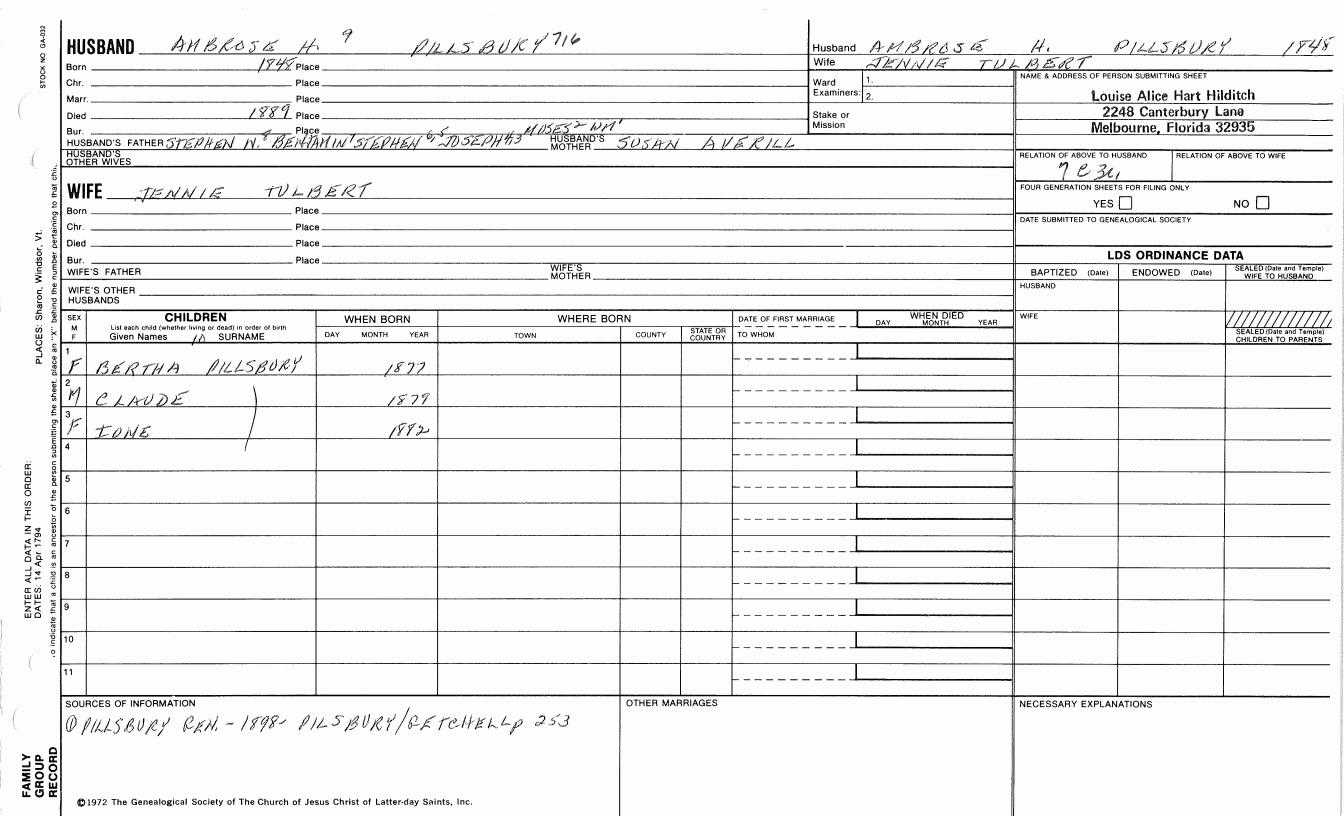 STOCK NO GA-032
HUSBAND AMBROSE H. 9 PILLSBURY 716
Born 1848 Place
Chr. Place
Marr. Place
Died 1889 Place
Bur. Place
HUSBAND'S FATHER STEPHEN N.8 BENJAMIN7 STEPHEN6, 5 JOSEPH4,3 MOSES2 WM1 HUSBAND'S MOTHER SUSAN AVERILL
HUSBAND'S OTHER WIVES
WIFE JENNIE TULBERT
Born Place
Chr. Place
Died Place
Bur. Place
WIFE'S FATHER WIFE'S MOTHER
WIFE'S OTHER HUSBANDS
Husband AMBROSE H. PILLSBURY 1848
Wife JENNIE TULBERT
Ward Examiners: 1. 2.
Stake or Mission
NAME & ADDRESS OF PERSON SUBMITTING SHEET
Louise Alice Hart Hilditch
2248 Canterbury Lane
Melbourne, Florida 32935
RELATION OF ABOVE TO HUSBAND RELATION OF ABOVE TO WIFE
7 C 3
FOUR GENERATION SHEETS FOR FILING ONLY
YES NO
DATE SUBMITTED TO GENEALOGICAL SOCIETY
LDS ORDINANCE DATA
BAPTIZED (Date) ENDOWED (Date) SEALED (Date and Temple) WIFE TO HUSBAND
HUSBAND
WIFE
SEALED (Date and Temple) CHILDREN TO PARENTS
SEX M F
CHILDREN
List each child (whether living or dead) in order of birth
Given Names SURNAME
WHEN BORN
DAY MONTH YEAR
WHERE BORN
TOWN COUNTY STATE OR COUNTRY
DATE OF FIRST MARRIAGE
TO WHOM
WHEN DIED
DAY MONTH YEAR
1 F BERTHA PILLSBURY 1877
2 M CLAUDE 1879
3 F IONE 1882
4
5
6
7
8
9
10
11
SOURCES OF INFORMATION
① PILLSBURY GEN. - 1898 - PILSBURY/GETCHELL p 253
OTHER MARRIAGES
NECESSARY EXPLANATIONS
©1972 The Genealogical Society of The Church of Jesus Christ of Latter-day Saints, Inc.
ENTER ALL DATA IN THIS ORDER:
DATES: 14 Apr 1794 PLACES: Sharon, Windsor, Vt.
o indicate that a child is an ancestor of the person submitting the sheet, place an "X" behind the number pertaining to that
FAMILY
GROUP
RECORD